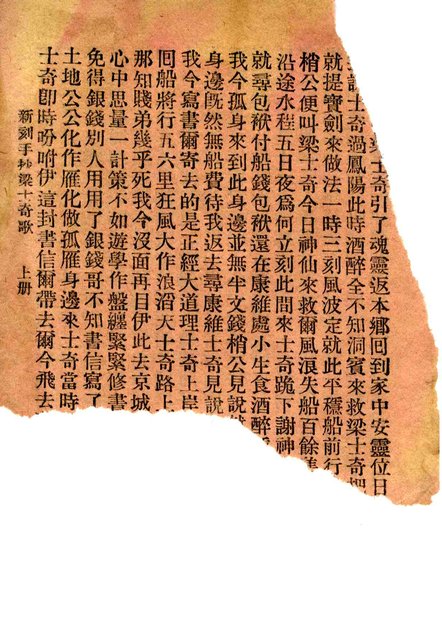 士奇引了魂靈返本鄉回到家中安靈位日
士奇過鳳陽此時酒醉全不知洞賓來救梁士奇
就提寶劍來做法一時三刻風波定就此平穩船前行
梢公便叫梁士奇今日神仙來救爾風浪失船百餘
沿途水程五日夜為何立刻此間來士奇跪下謝神
就尋包袱付船錢包袱還在康維處小生食酒醉
我今孤身來到此身邊並無半文錢梢公見說
身邊既然無船費待我返去尋康維士奇見說
我今寫書爾寄去的是正經大道理士奇上岸
囘船將行五六里狂風大作浪滔天士奇路上
那知賤弟幾乎死我今沒面再目伊此去京城
心中思量一計策不如遊學作盤纏緊緊修書
免得銀錢別人用用了銀錢哥不知書信寫了
土地公公化作雁化做孤雁身邊來士奇當時
士奇卽時吩咐伊這封書信爾帶去爾今飛去
新刻手抄梁士奇歌 上册